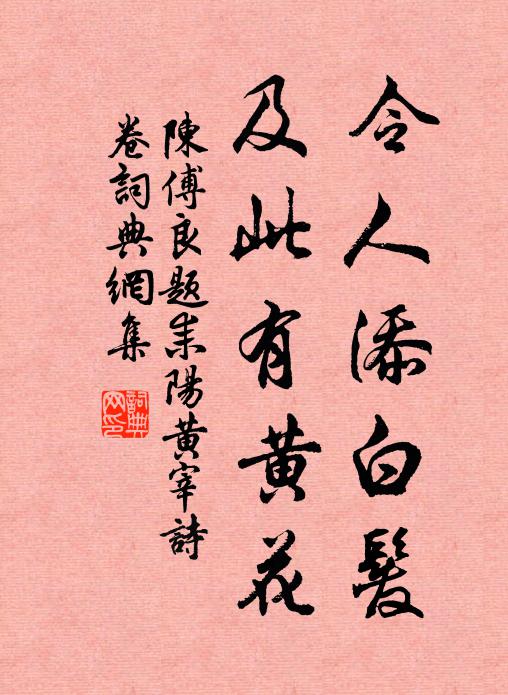 令人添白髮
及此有黃花
陳傅良題耒陽黃宰詩
卷詞典網集
詞典
网印